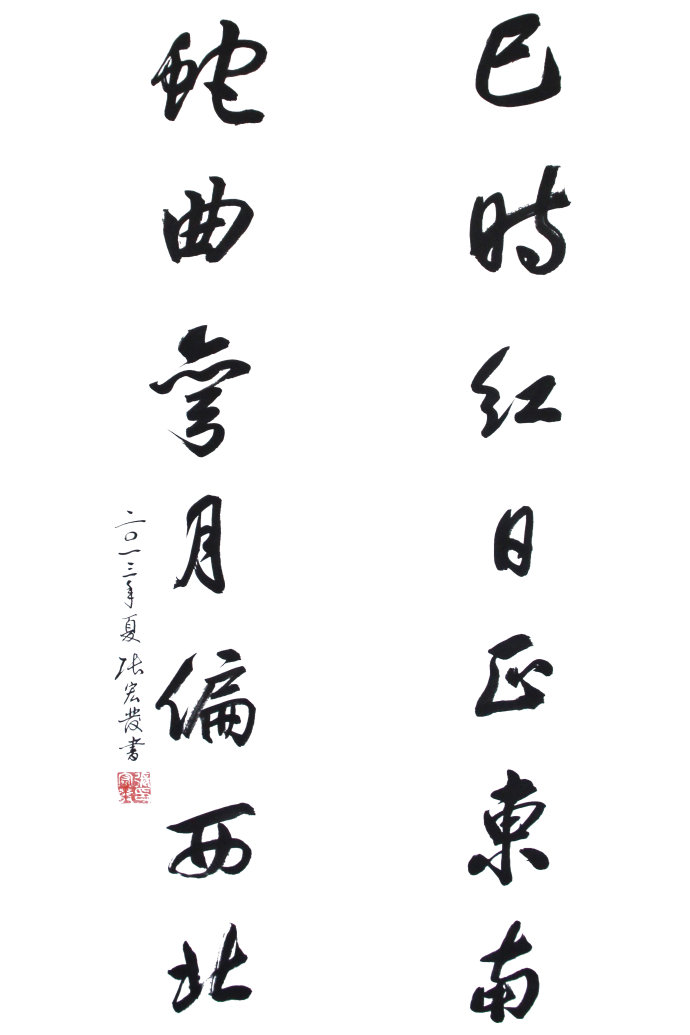 巳時红日正東南
蛇曲彎月偏西北
二〇一三年夏张宏發书